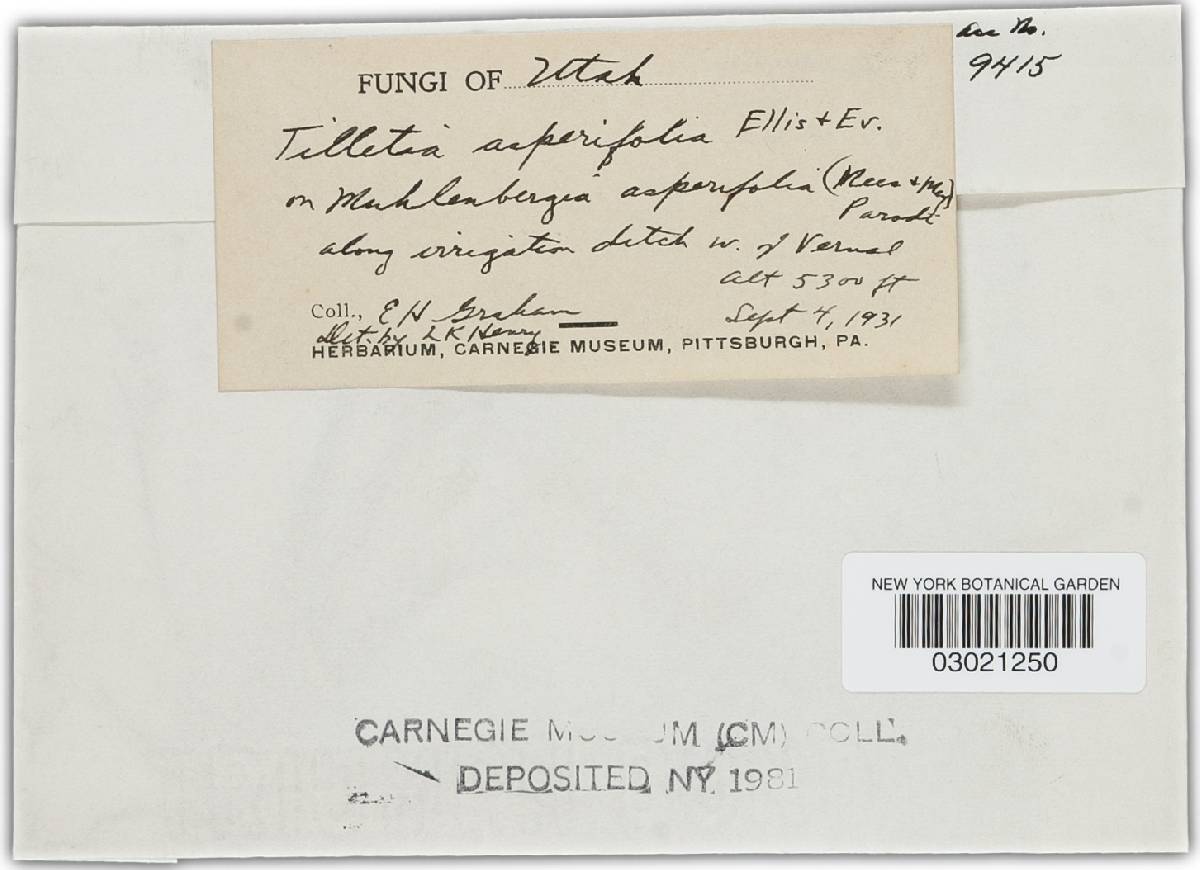 Acc No.
9415
FUNGI OF Utah
Tilletia asperifolia Ellis + Ev.
on Muhlenbergia asperifolia (Nees + Mey)
Parodi
along irrigation ditch w. of Vernal
Alt 5300 ft
Coll., E H Graham
Sept 4, 1931
Det. by L K Henry
HERBARIUM, CARNEGIE MUSEUM, PITTSBURGH, PA.
NEW YORK BOTANICAL GARDEN
03021250
CARNEGIE MUSEUM (CM) COLL.
DEPOSITED NY 1981